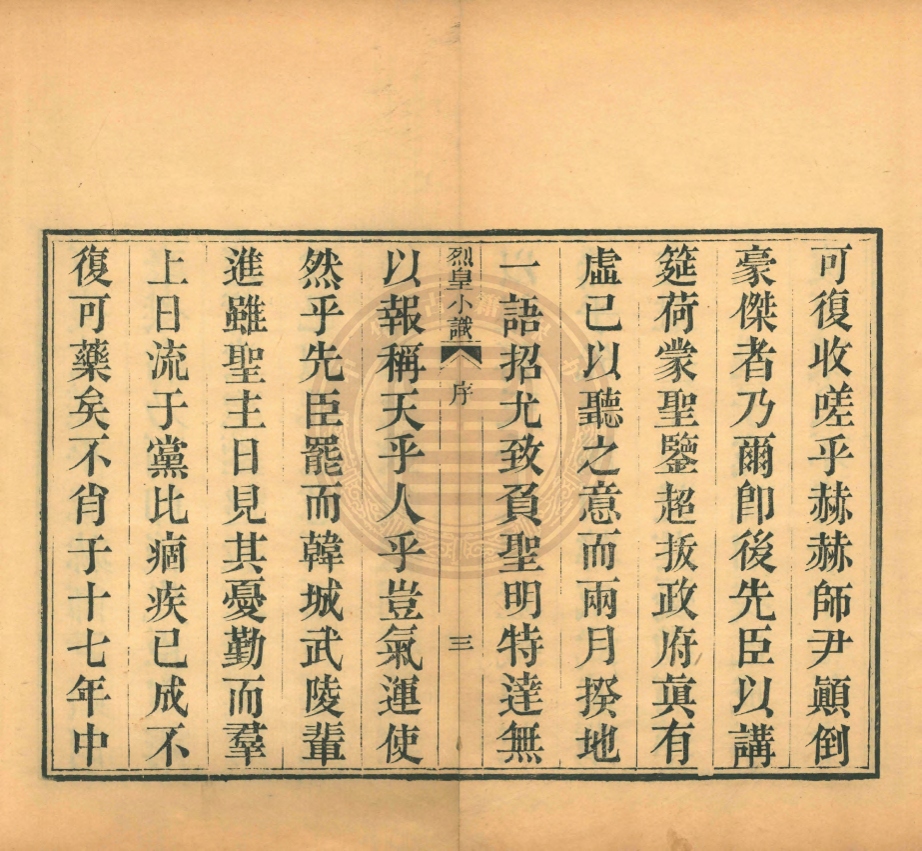 可復收嗟乎赫赫師尹顚倒
豪傑者乃爾卽後先臣以講
筵荷蒙聖鑒超拔政府眞有
虛已以聽之意而兩月揆地
一語招尤致負聖明特達無
烈皇小識 序 三
以報稱天乎人乎豈氣運使
然乎先臣罷而韓城武陵輩
進雖聖主日見其憂勤而羣
上日流于黨比痼疾已成不
復可藥矣不肖于十七年中